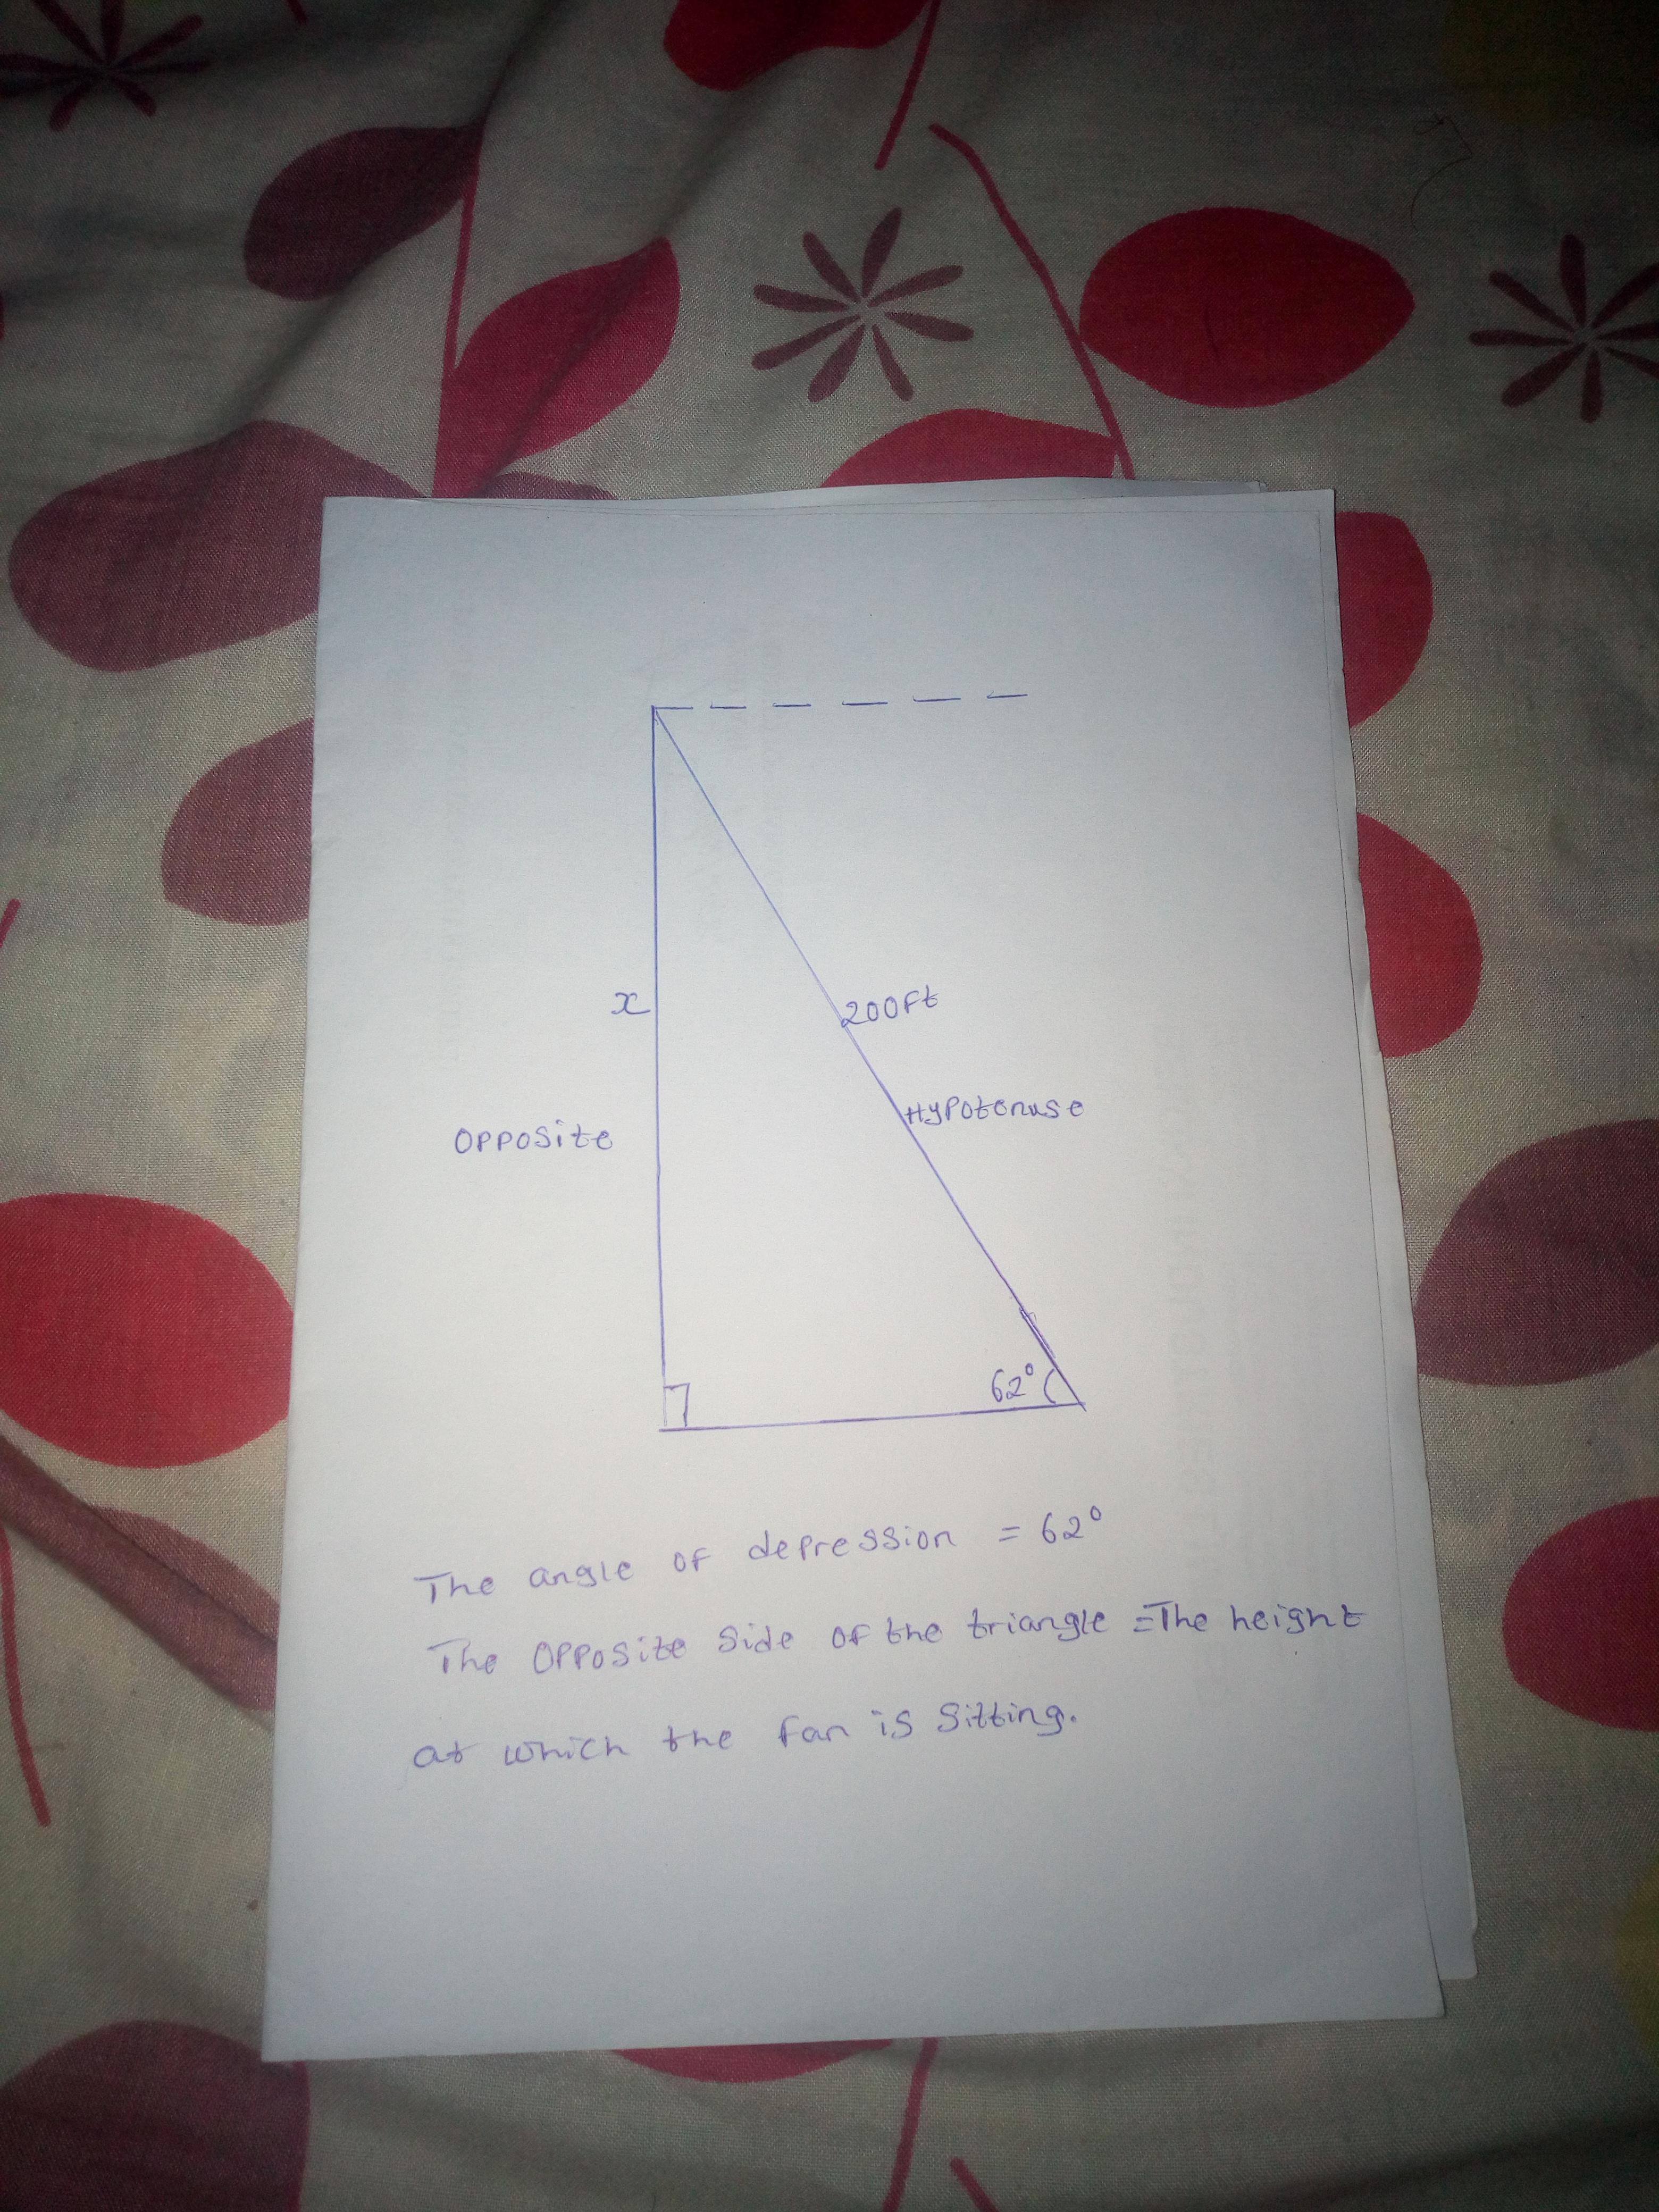 x
200Ft
Hypotenuse
Opposite
62°
The angle of depression = 62°
The Opposite Side of the triangle = The height
at which the fan is Sitting.